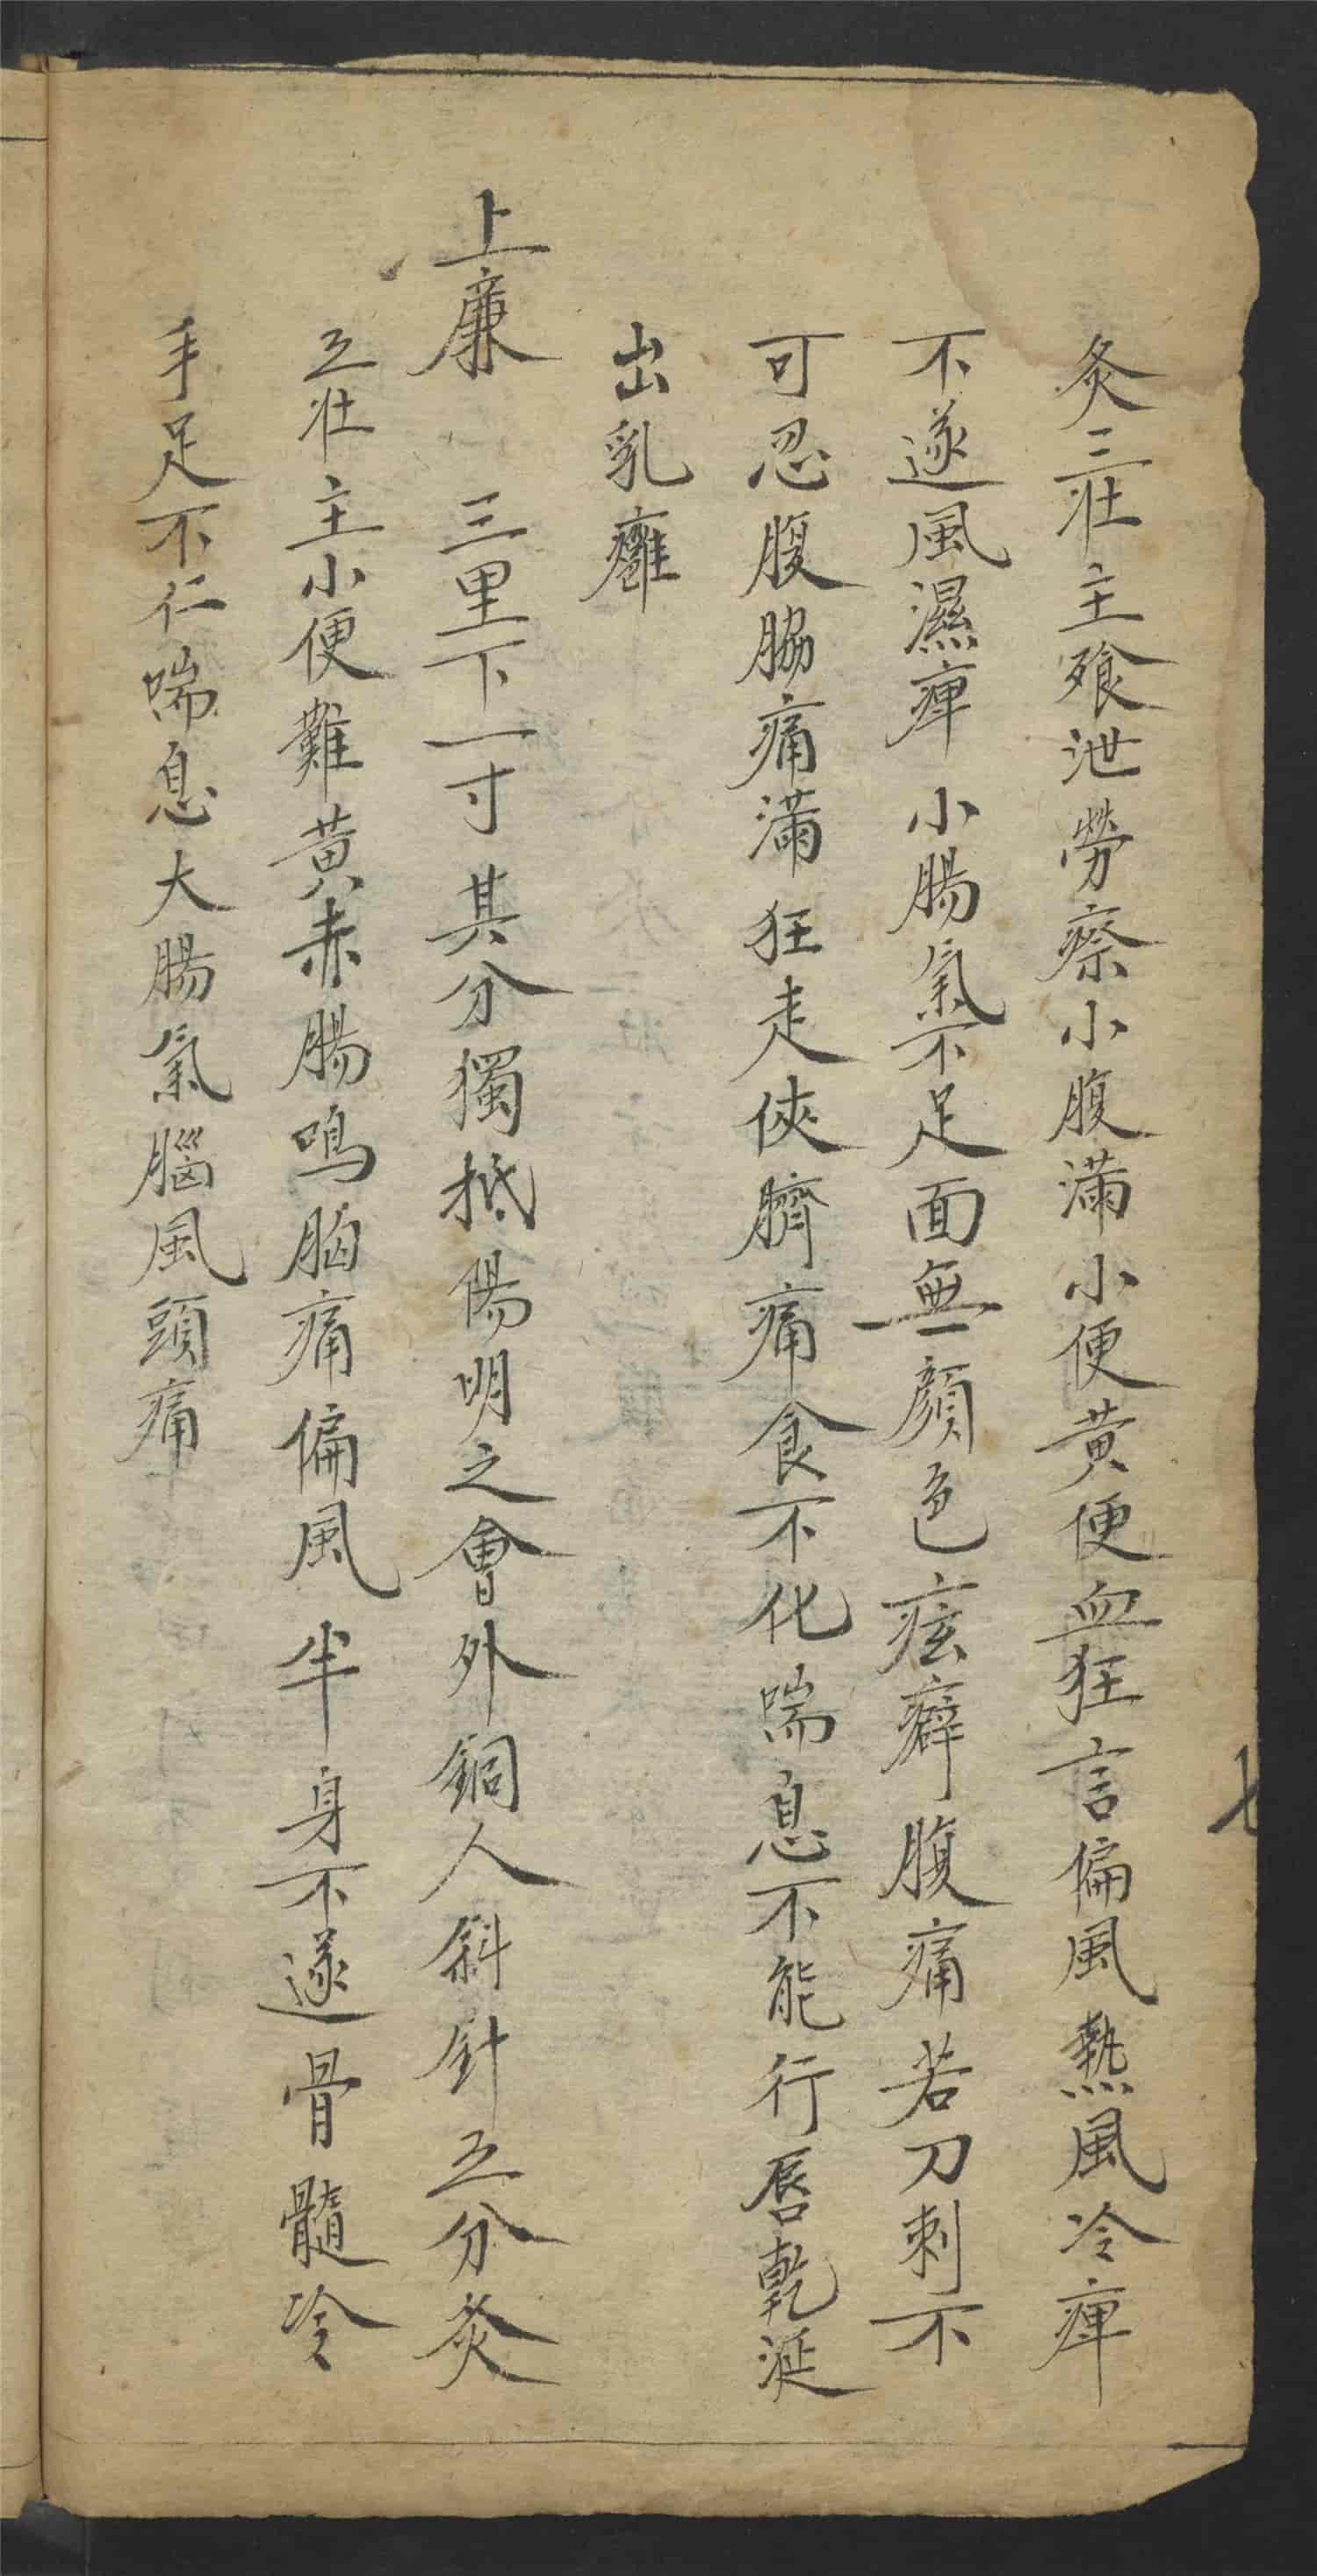 灸三壯主飧泄勞瘵小腹滿小便黃便血狂言偏風熱風冷痺
不遂風濕痺小腸氣不足面無顏色痃癖腹痛若刀刺不
可忍腹脇痛滿狂走俠臍痛食不化喘息不能行唇乾涎
出乳癰
上廉　三里下一寸其分獨抵陽明之會外銅人斜針五分灸
五壯主小便難黃赤腸鳴胸痛偏風半身不遂骨髓冷
手足不仁喘息大腸氣腦風頭痛
七